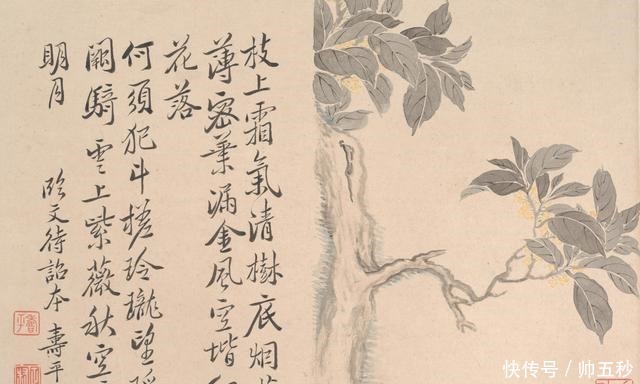 枝上霜氣清樹底烟
薄密葉漏金風空堦
花落
何須犯斗槎玲瓏望
闕騎雲上紫薇秋空
明月
臨文待詔本 壽平
快传号/帅五秒